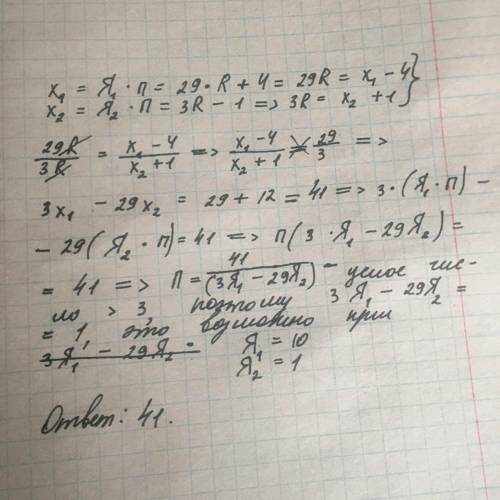 x₁ = Я₁ · п = 29 · R + 4 = 29R = x₁ - 4 }
x₂ = Я₂ · П = 3R - 1 => 3R = x₂ + 1 }
29R / 3R = x₁ - 4 / x₂ + 1 => x₁ - 4 / x₂ + 1 = 29 / 3 =>
3x₁ - 29x₂ = 29 + 12 = 41 => 3 · (Я₁ · п) -
- 29 (Я₂ · п) = 41 => П (3 · Я₁ - 29Я₂) =
= 41 => П = 41 / (3Я₁ - 29Я₂) - целое чис-
ло > 3, поэтому 3Я₁ - 29Я₂ =
= 1, это возможно при
3Я₁ - 29Я₂ = Я₁ = 10
Я₂ = 1
Ответ: 41.